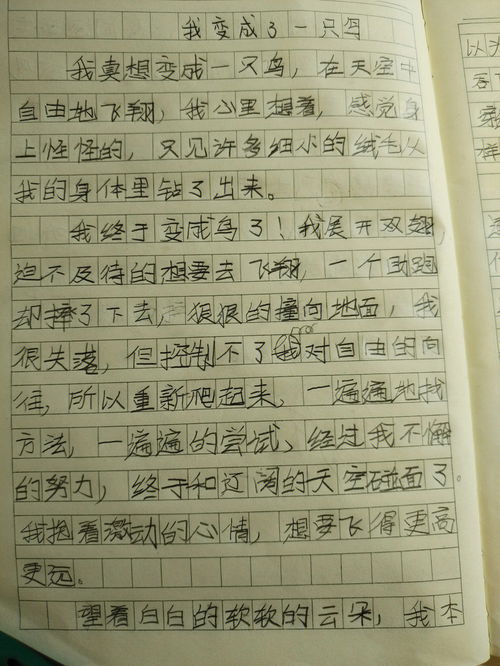 我变成了一只鸟
我真想变成一只鸟，在天空中
自由地飞翔，我心里想着，感觉身
上怪怪的，只见许多细小的绒毛从
我的身体里钻了出来。
我终于变成鸟了！我展开双翅，
迫不及待的想要去飞翔，一个助跑
却摔了下去，狠狠的撞向地面，我
很失落，但控制不了我对自由的向
往，所以重新爬起来，一遍遍地找
方法，一遍遍的尝试、经过我不懈
的努力，终于和辽阔的天空碰面了。
我抱着激动的心情，想要飞得更高
更远。
望着白白的软软的云朵，我本
以